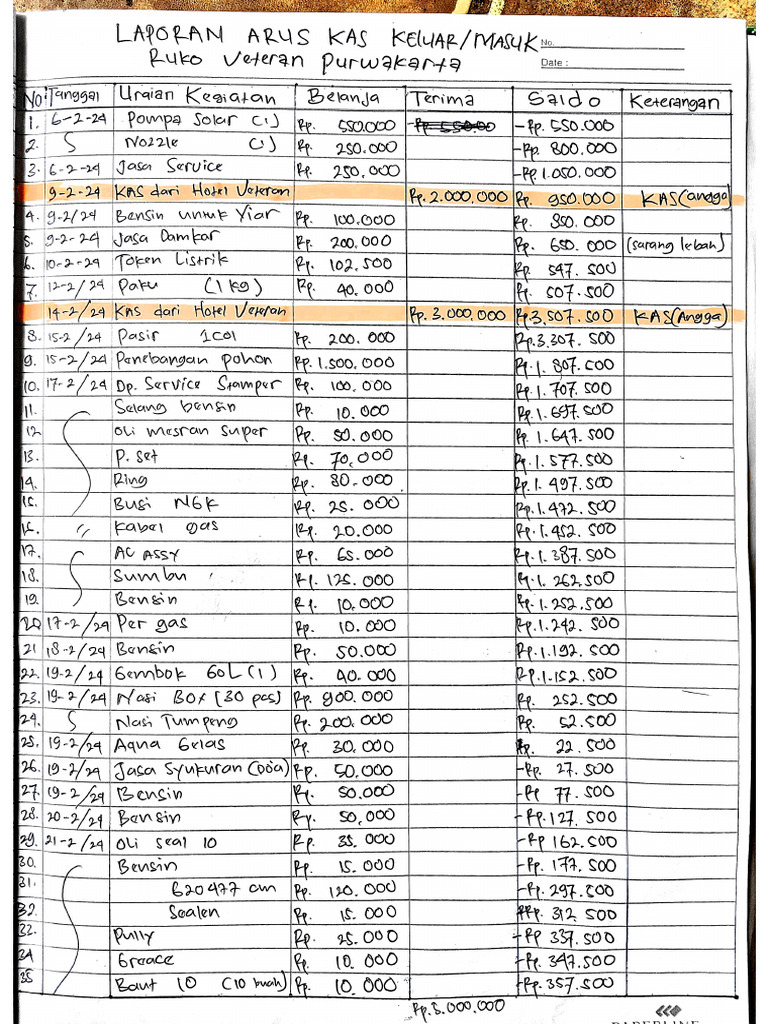 LAPORAN ARUS KAS KELUAR/MASUK
Ruko Veteran Purwakarta
No.
Date :
No Tanggal Uraian Kegiatan Belanja Terima Saldo Keterangan
1. 6-2-24 Pompa Solar (1) Rp. 550.000 -Rp. 550.000
2. Nozzle (1) Rp. 250.000 -Rp. 800.000
3. 6-2-24 Jasa Service Rp. 250.000 -Rp 1.050.000
9-2-24 KAS dari Hotel Veteran Rp. 2.000.000 Rp. 950.000 KAS (angga)
4. 9-2/24 Bensin untuk Yiar Rp. 100.000 Rp. 850.000
5. 9-2-24 Jasa Damkar Rp. 200.000 Rp. 650.000 (sarang lebah)
6. 10-2-24 Token Listrik Rp. 102.500 Rp. 547.500
7. 12-2/24 Paku (1 kg) Rp. 40.000 Rp. 507.500
14-2/24 Kas dari Hotel Veteran Rp. 3.000.000 Rp. 3.507.500 KAS (Angga)
8. 15-2/24 Pasir 1 col Rp. 200.000 Rp. 3.307.500
9. 15-2/24 Penebangan pohon Rp. 1.500.000 Rp. 1.807.500
10. 17-2/24 Dp. Service Stamper Rp. 100.000 Rp. 1.707.500
11. Selang bensin Rp. 10.000 Rp. 1.697.500
12 Oli mesran super Rp. 50.000 Rp. 1.647.500
13. P. set Rp. 70,000 Rp. 1.577.500
14. Ring Rp. 80.000 Rp. 1.497.500
15. Busi NGK Rp. 25.000 Rp. 1.472.500
16. " Kabel gas Rp. 20.000 Rp. 1.452.500
17. AC ASSY Rp. 65.000 Rp. 1.387.500
18. Sumbu Rp. 125.000 Rp. 1.262.500
19. Bensin Rp. 10.000 Rp. 1.252.500
20 17-2/24 Per gas Rp. 10.000 Rp. 1.242.500
21 18-2/24 Bensin Rp. 50.000 Rp. 1.192.500
22. 19-2/24 Gembok 60L (1) Rp. 40.000 Rp. 1.152.500
23. 19-2/24 Nasi Box [30 pcs) Rp. 900.000 Rp. 252.500
24. Nasi Tumpeng Rp. 200.000 Rp. 52.500
25. 19-2/24 Aqua Gelas Rp. 30.000 Rp. 22.500
26. 19-2/24 Jasa Syukuran (Doa) Rp. 50.000 -Rp. 27.500
27. 19-2/24 Bensin Rp. 50.000 -Rp 77.500
28. 20-2/24 Bensin Rp. 50,000 -Rp. 127.500
29. 21-2/24 Oli seal 10 Rp. 35.000 -Rp 162.500
30. Bensin Rp. 15.000 -Rp. 177.500
31. 620477 cm Rp. 120.000 -Rp. 297.500
32. Sealen Rp. 15.000 -Rp. 312.500
33. Pully Rp. 25.000 -Rp 337.500
34 Greace Rp. 10.000 -Rp. 347.500
35 Baut 10 (10 buah) Rp. 10.000 -Rp. 357.500
Rp. 5.000.000